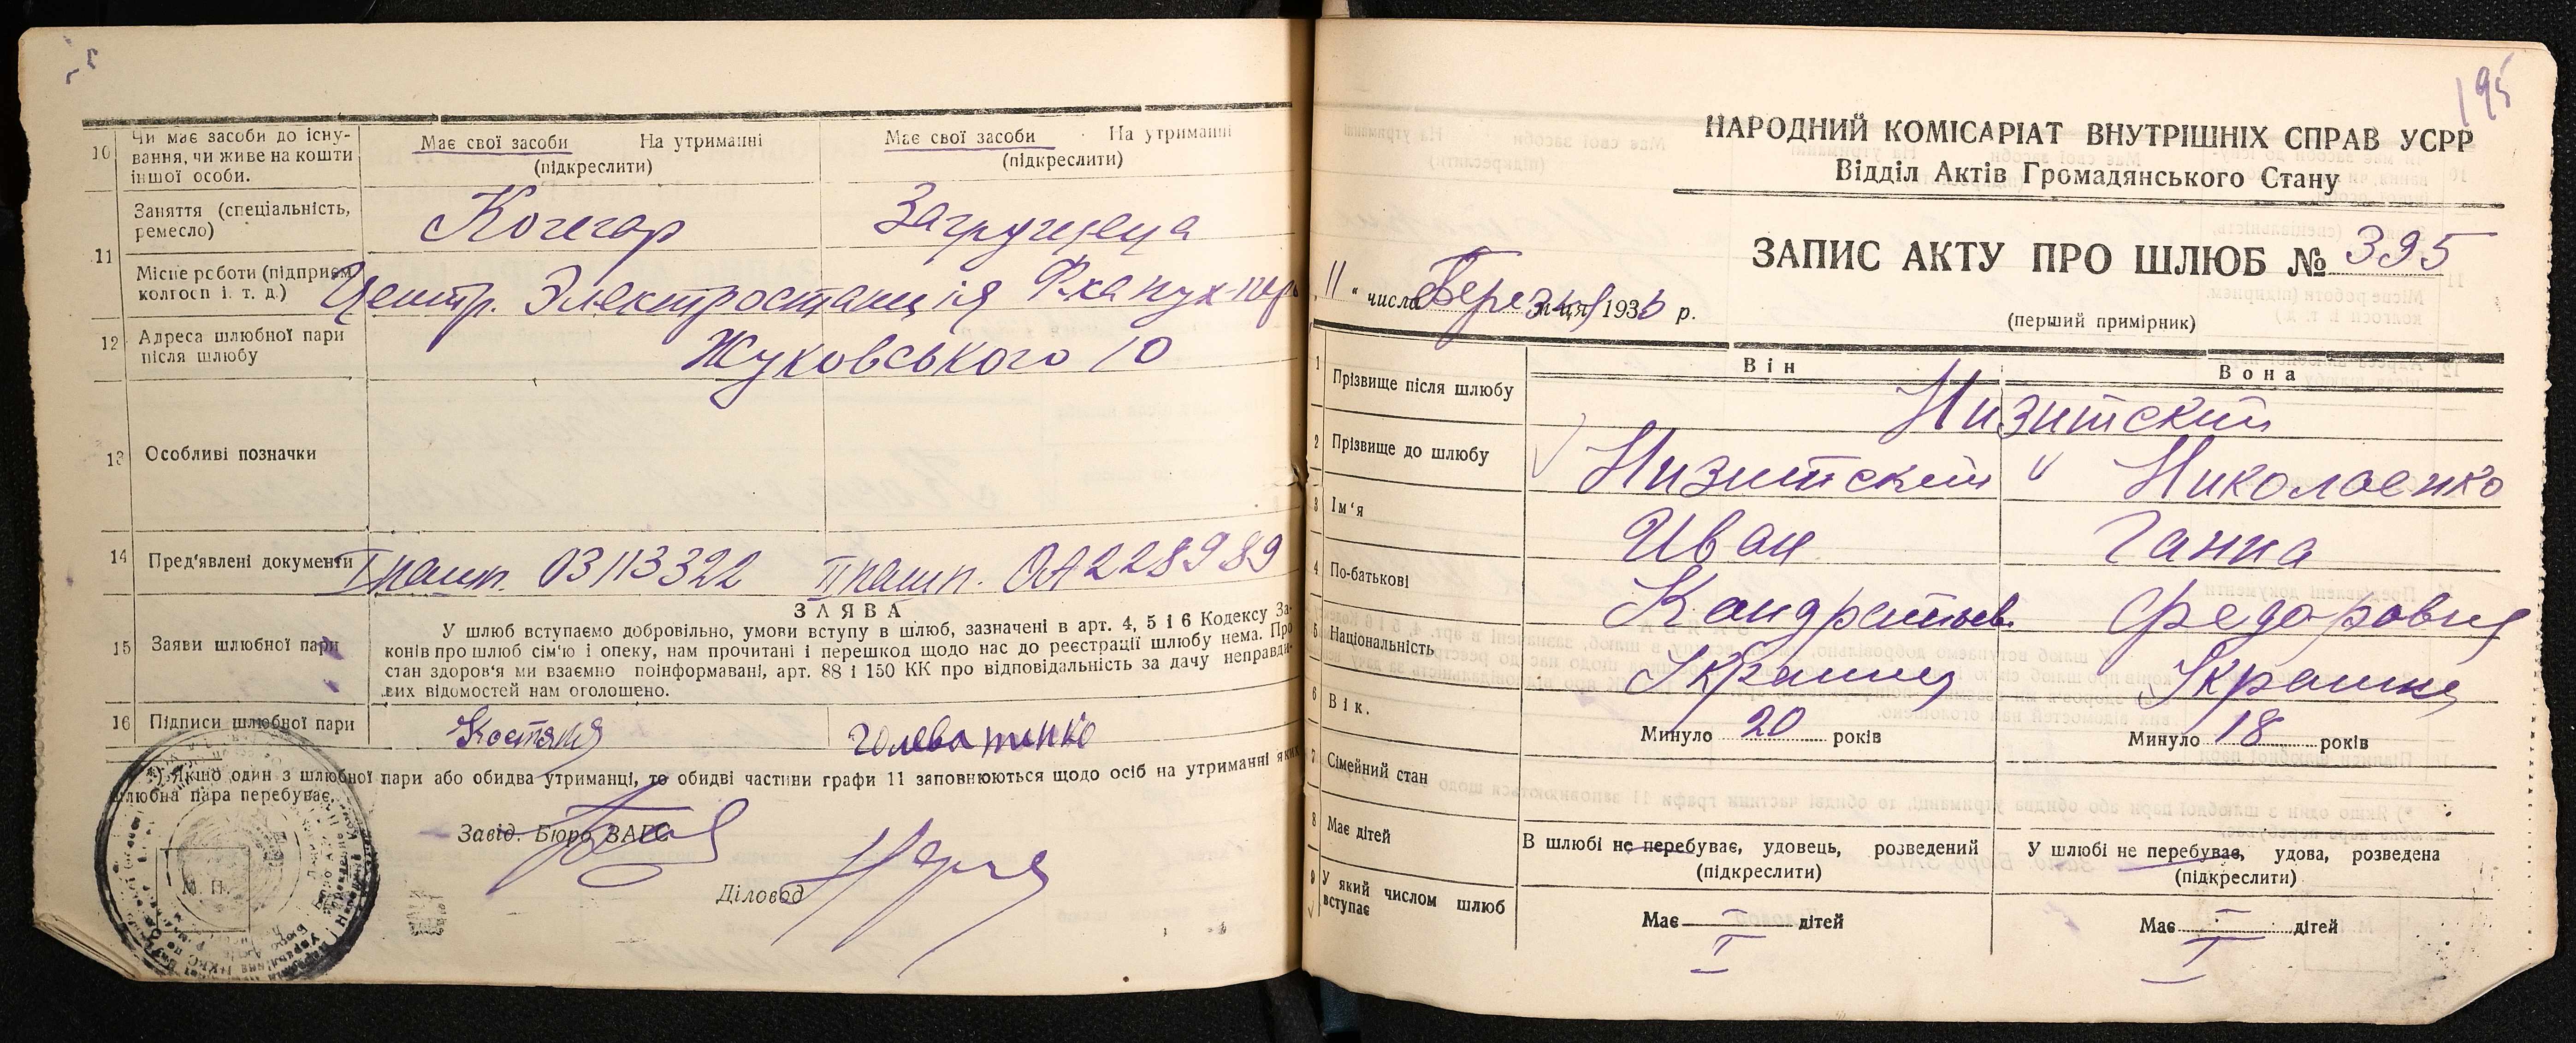 10 Чи має засоби до існу-
вання, чи живе на кошти
іншої особи.
Має свої засоби На утриманні
(підкреслити)
Має свої засоби На утриманні
(підкреслити)
11 Заняття (спеціальність,
ремесло)
Кочегар
Місце роботи (підприєм.
колгосп і. т. д.)
Центр. Электростанція
12 Адреса шлюбної пари
після шлюбу
Жуковського 10
13 Особливі позначки
14 Пред'явлені документи
I пашп. 03113322 II пашп. ОА228989
15 Заяви шлюбної пари
ЗАЯВА
У шлюб вступаємо добровільно, умови вступу в шлюб, зазначені в арт. 4, 5 і 6 Кодексу За-
конів про шлюб сім'ю і опеку, нам прочитані і перешкод щодо нас до реєстрації шлюбу нема. Про
стан здоров'я ми взаємно поінформавані, арт. 88 і 150 КК про відповідальність за дачу неправди-
вих відомостей нам оголошено.
16 Підписи шлюбної пари
*) Якшо один з шлюбної пари або обидва утриманці, то обидві частини графи 11 заповнюються щодо осіб на утриманні яких
шлюбна пара перебуває.
Завід. Бюро ЗАГС
Діловод
М. П.
195
НАРОДНИЙ КОМІСАРІАТ ВНУТРІШНІХ СПРАВ УСРР
Відділ Актів Громадянського Стану
ЗАПИС АКТУ ПРО ШЛЮБ № 395
„11" числа Березня м-ця 1936 р.
(перший примірник)
Він Вона
1 Прізвище після шлюбу
Низитский
2 Прізвище до шлюбу
Низитский Николаенко
3 Ім'я
Иван Ганна
4 По-батькові
Кандратьев. Федоровна
5 Національність
6 Вік.
Минуло 20 років Минуло 18 років
7 Сімейний стан
В шлюбі не перебуває, удовець, розведений
(підкреслити)
У шлюбі не перебуває, удова, розведена
(підкреслити)
8 Має дітей
Має — дітей Має — дітей
9 У який числом шлюб
вступає
I I